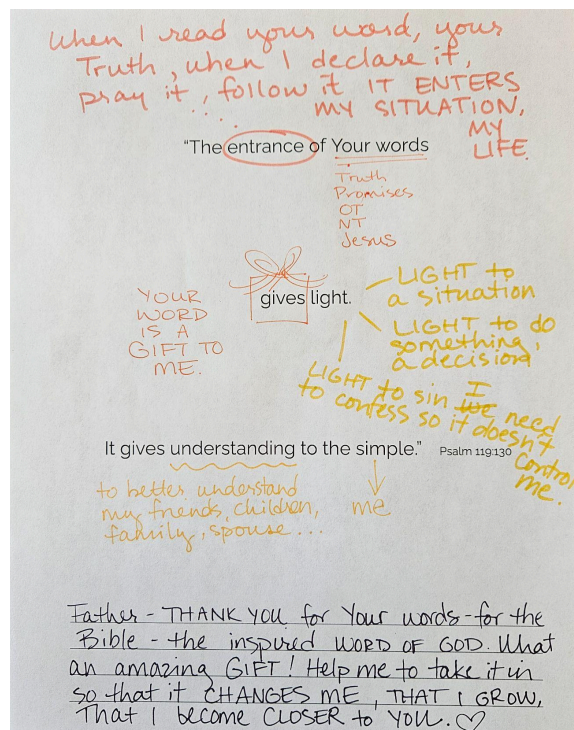 When I read your word, your
Truth, when I declare it,
pray it, follow it IT ENTERS
.... MY SITUATION,
MY
LIFE.
"The entrance of Your words
Truth
Promises
OT
NT
Jesus
gives light.
YOUR
WORD
IS A
GIFT TO
ME.
LIGHT to
a situation
LIGHT to do
something,
a decision
LIGHT to sin I we need
to confess so it doesn't
control
me.
It gives understanding to the simple." Psalm 119:130
to better understand
my friends, children,
family, spouse...
me
Father - THANK YOU for Your words - for the
Bible - the inspired WORD OF GOD. What
an amazing GIFT! Help me to take it in
so that it CHANGES ME, THAT I GROW,
That I become CLOSER to YOU. ♡